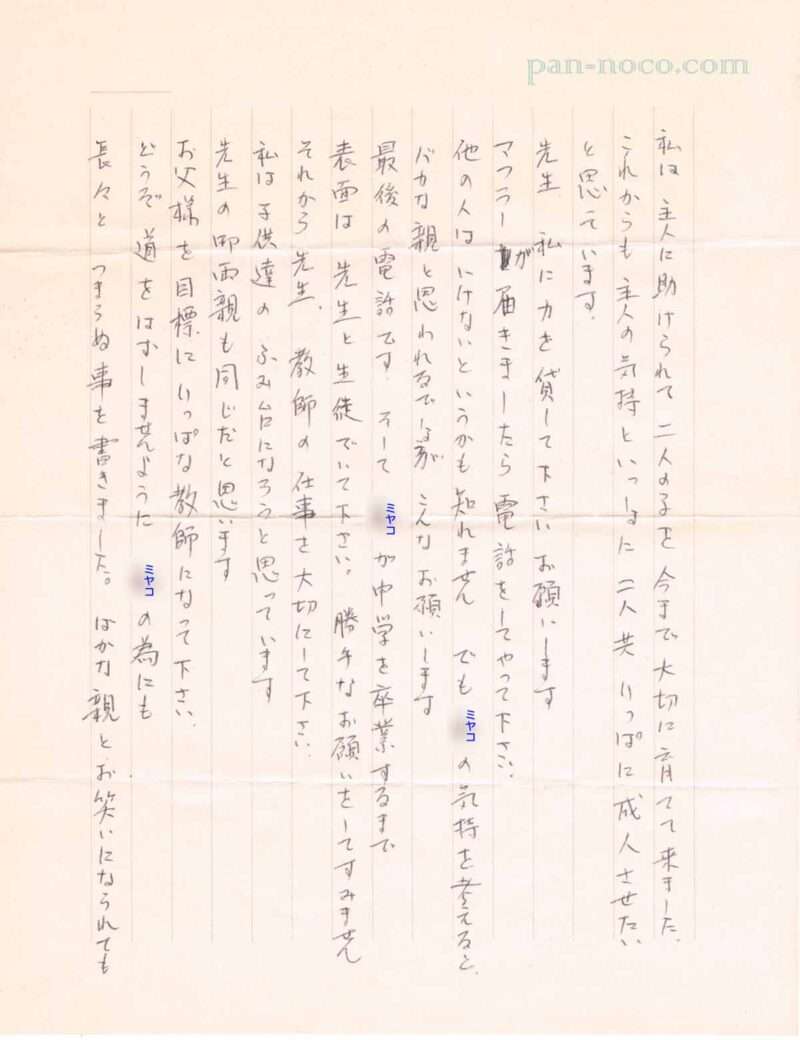 pan-noco.com
私は主人に助けられて二人の子を今まで大切に育てて来ました.
これからも主人の気持といっしょに二人共りっぱに成人させたい
と思ています.
先生 私に力を貸して下さいお願いします
マフラーが届きましたら電話をしてやって下さい.
他の人はいけないというかも知れません でもミヤコの気持を考えると.
バカな親と思われるでしょうが こんなお願いします
最後の電話です. そしてミヤコが中学を卒業するまで
表面は先生と生徒でいて下さい. 勝手なお願いをしてすみません
それから先生. 教師の仕事を大切にして下さい.
私は子供達のふみ台になろうと思っています
先生の御両親も同じだと思います
お父様を目標にりっぱな教師になって下さい.
どうぞ道をはずしませんように ミヤコの為にも
長々とつまらぬ事を書きました。 ばかな親とお笑いになられても